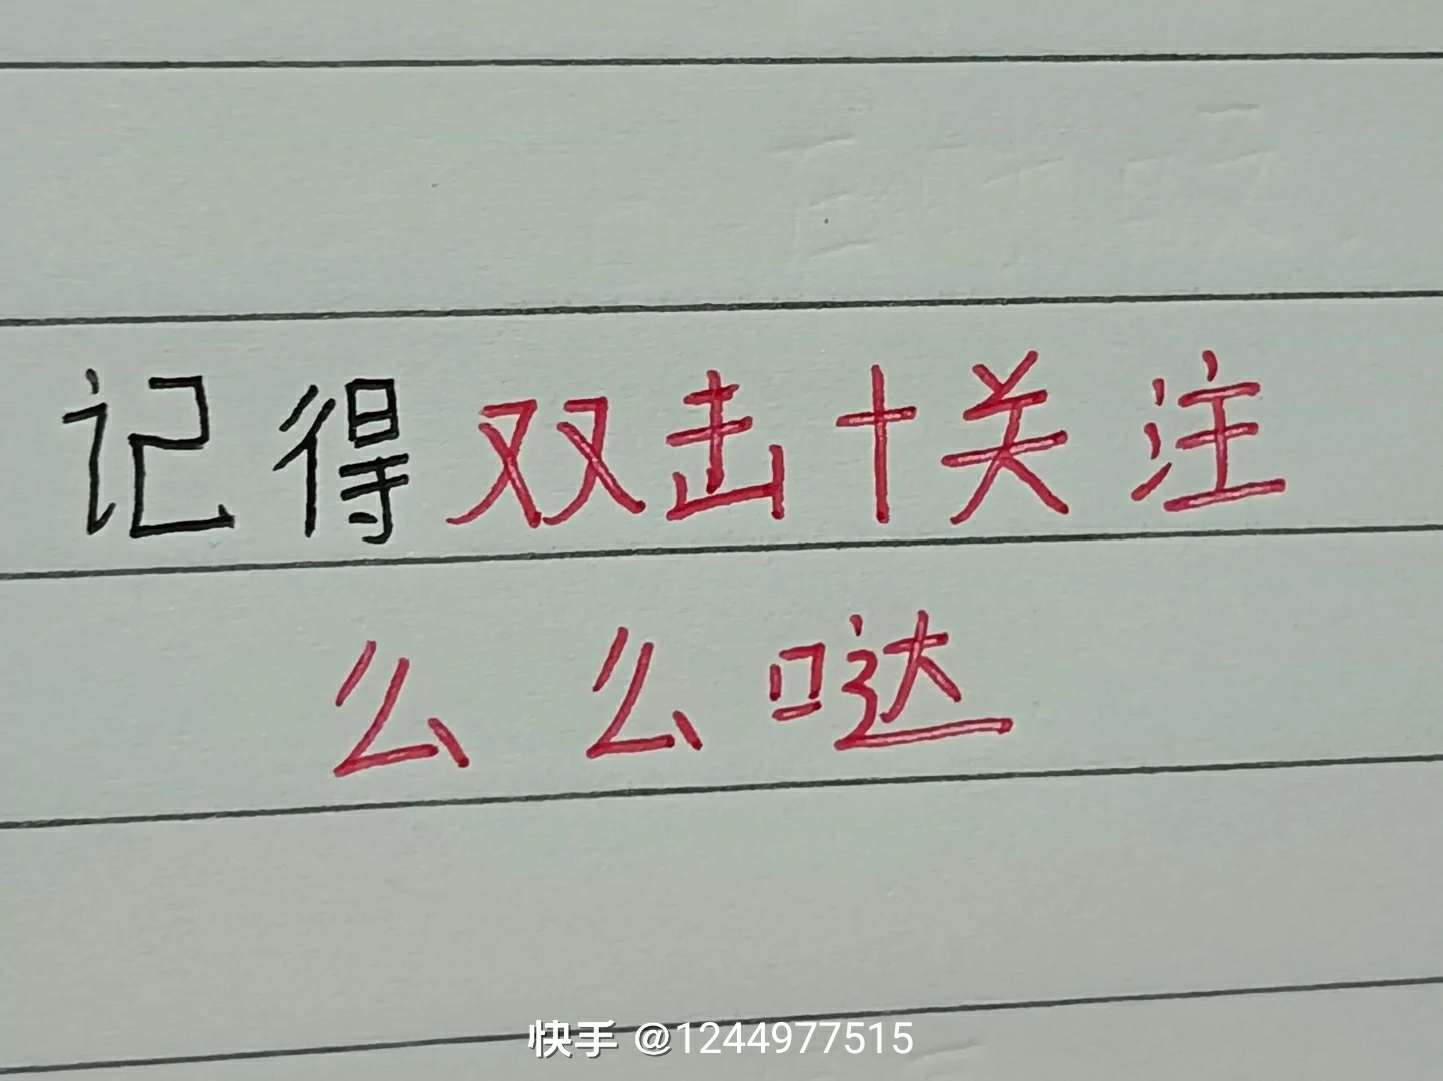 记得双击+关注
么么哒
快手 @1244977515